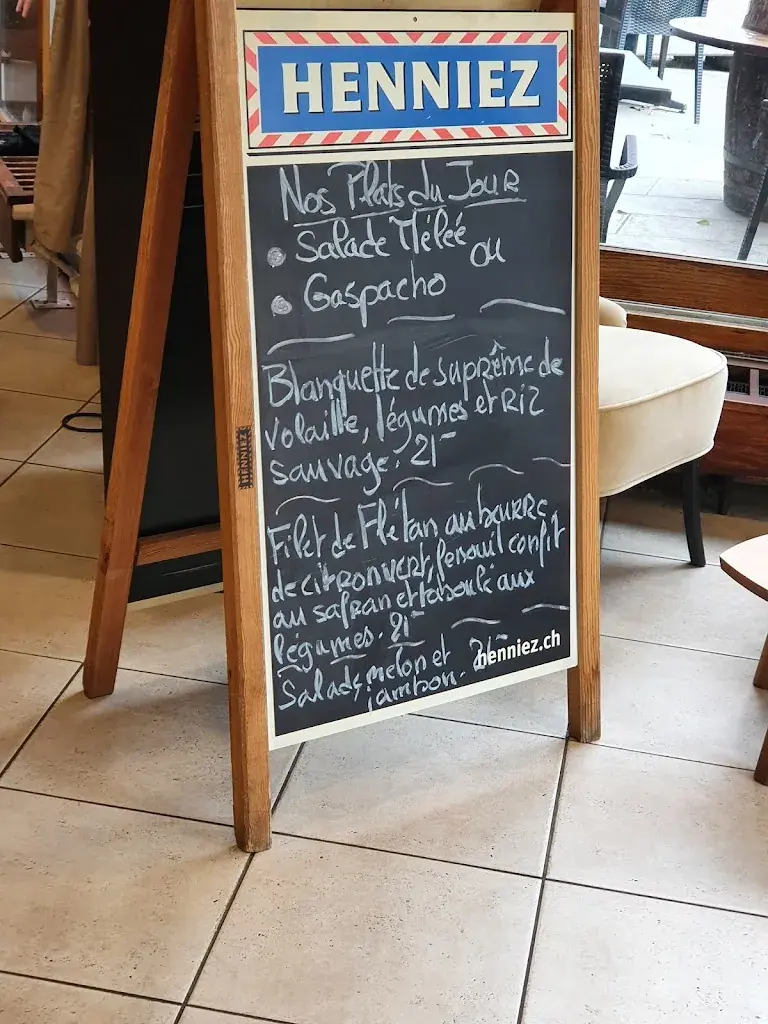 HENNIEZ
Nos Plats du Jour
Salade Mêlée
ou
Gaspacho
Blanquette de suprême de
volaille, légumes et Riz
sauvage. 21.-
Filet de Flétan au beurre
de citron vert, fenouil confit
au safran et taboulé aux
légumes. 21.-
Salade, melon et 21.-
jambon.
henniez.ch
HENNIEZ